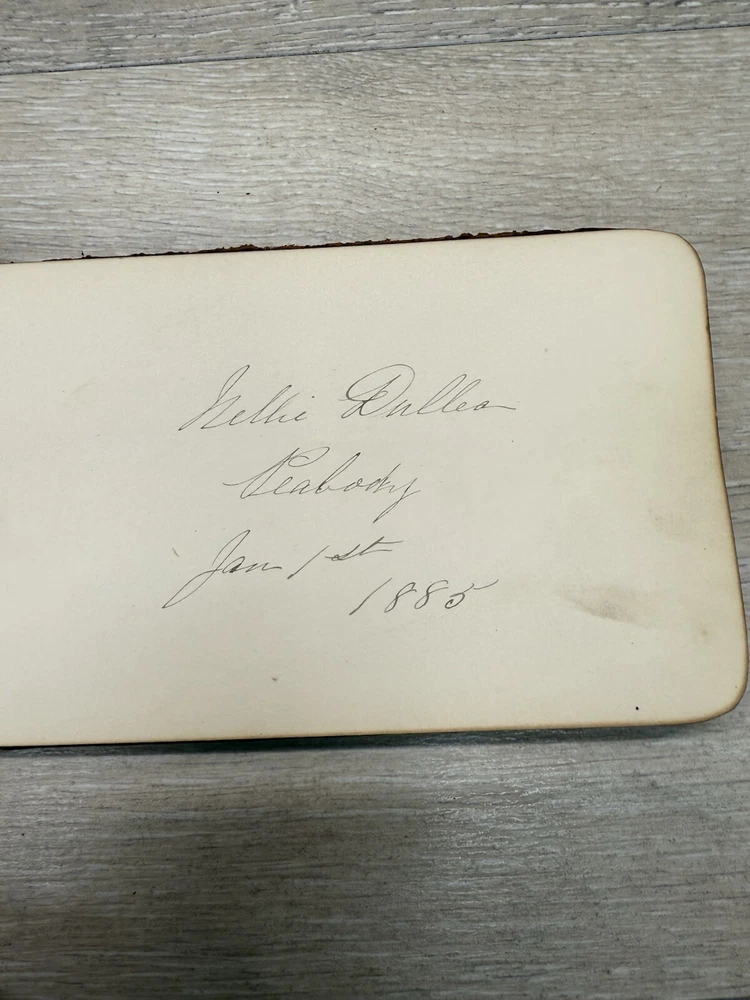 Nellie Dullea
Peabody
Jan 1st
1885